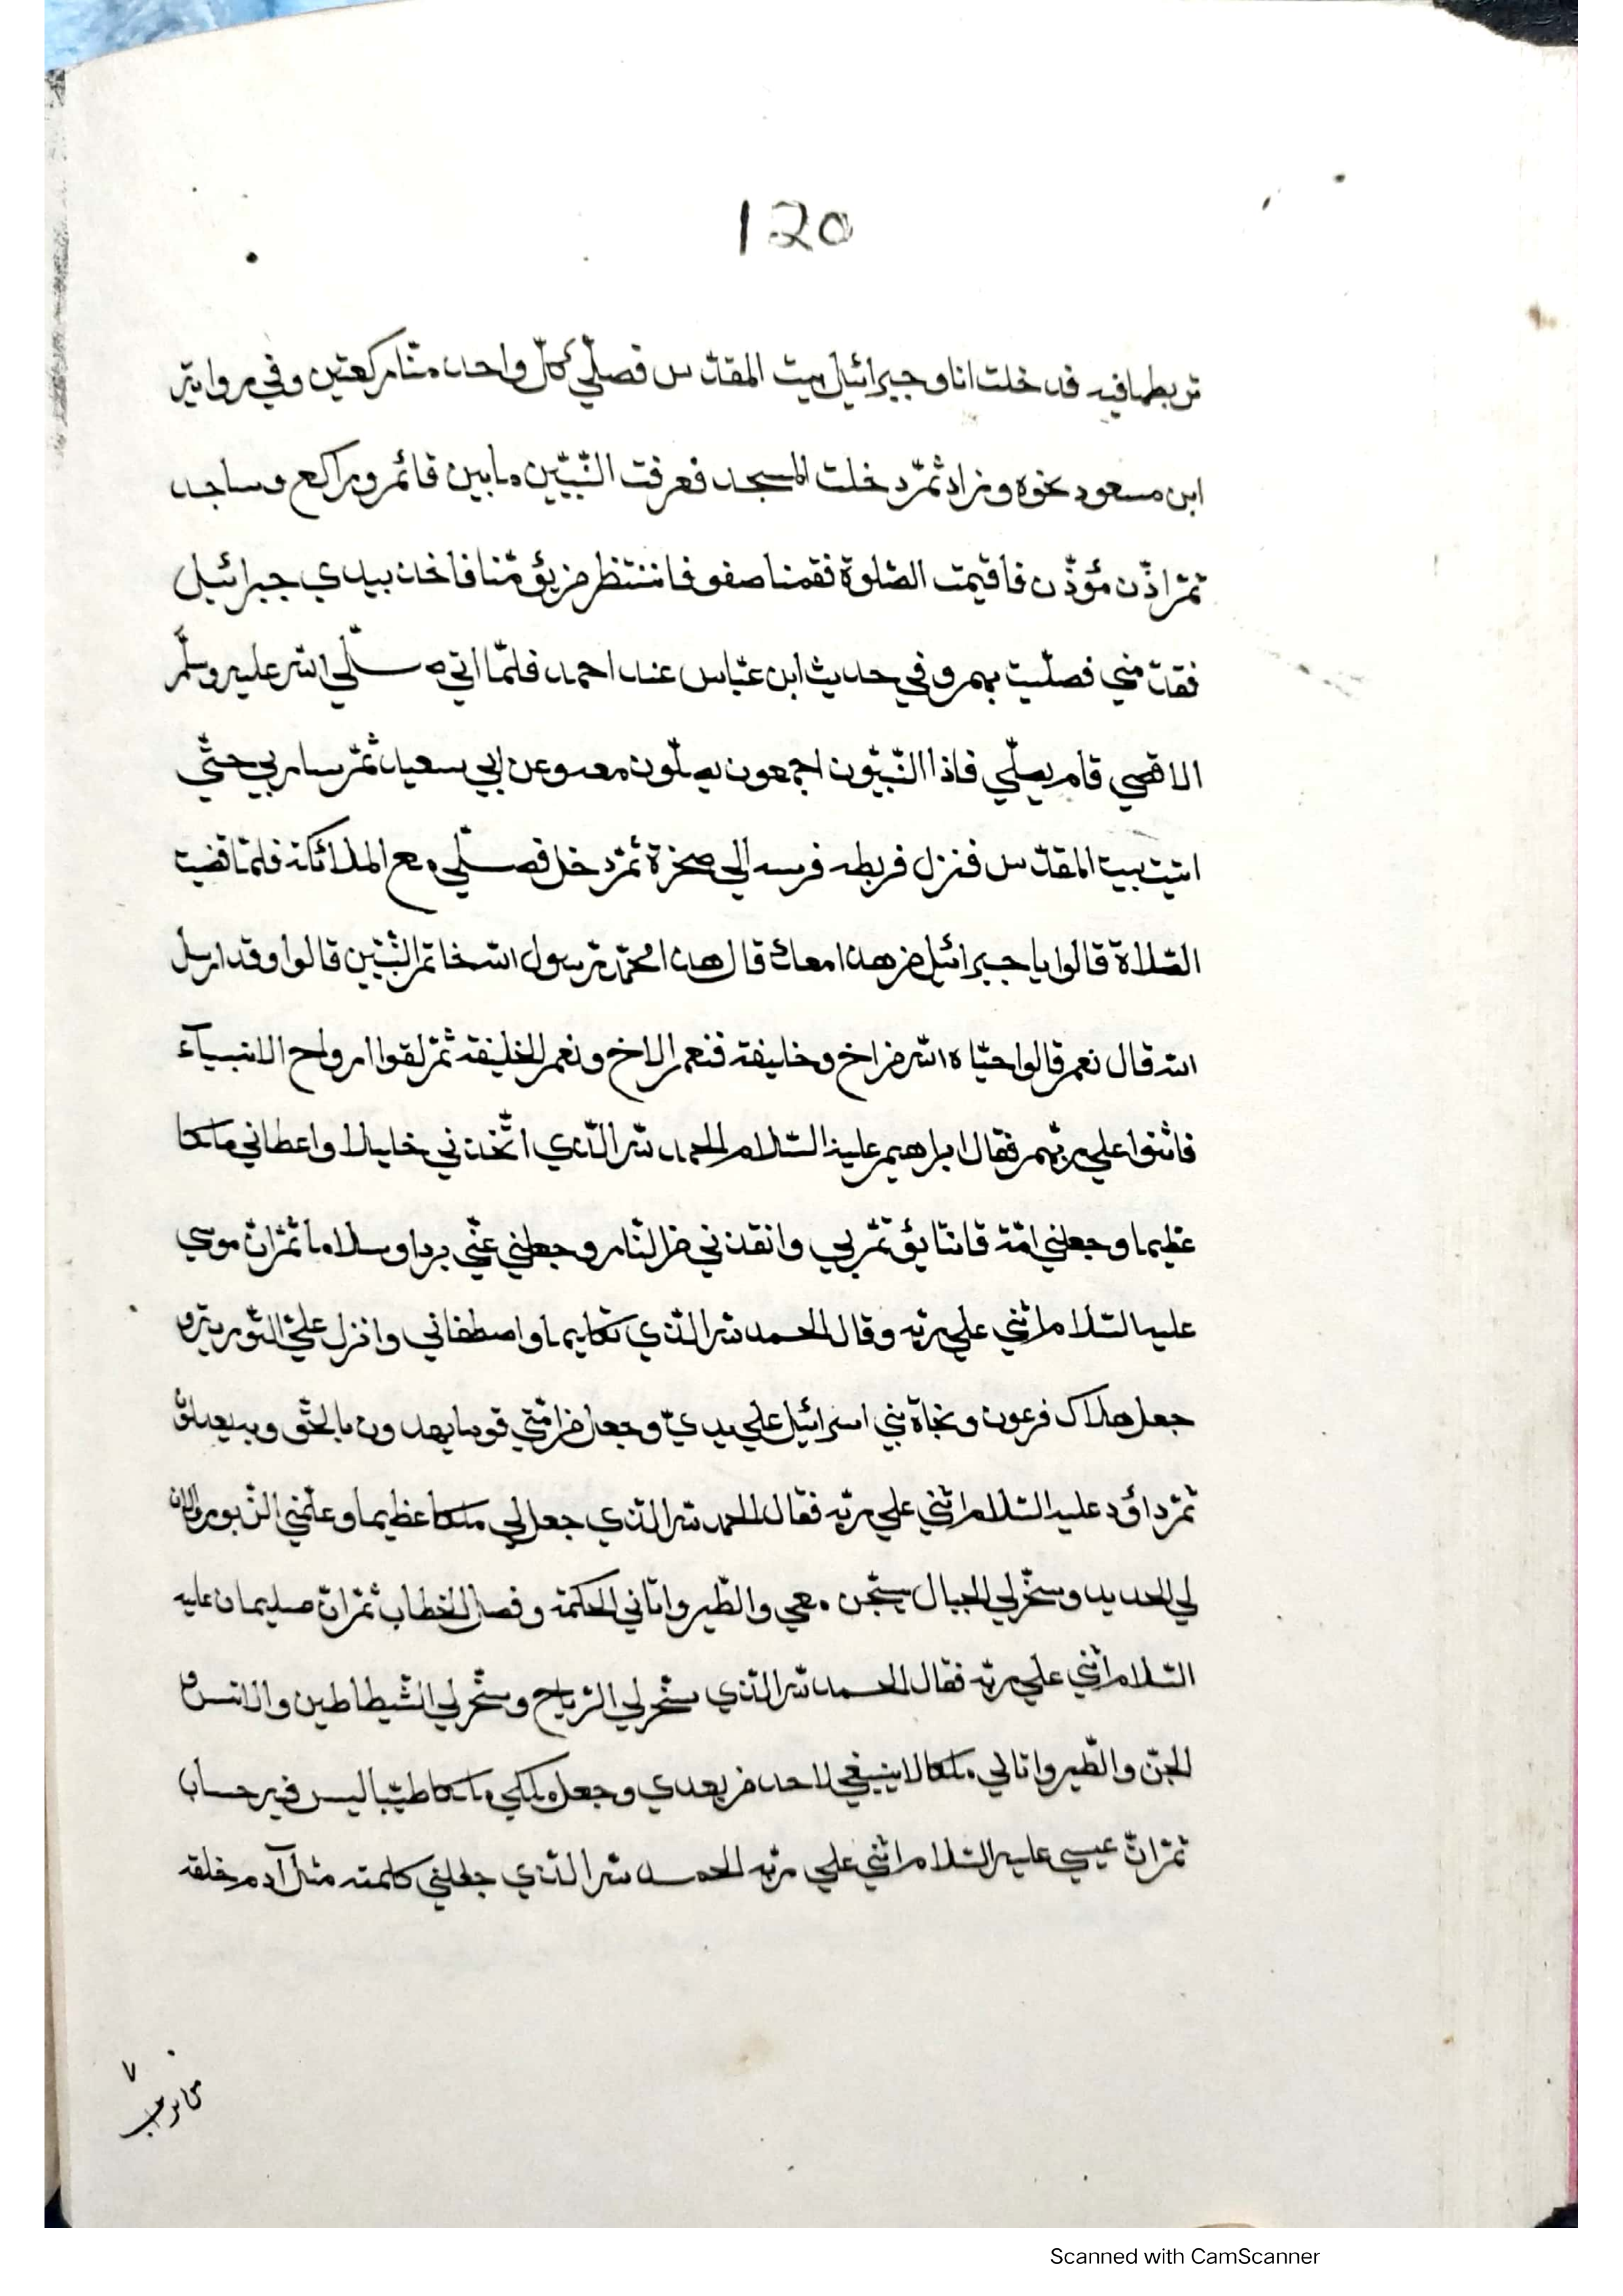 120
تربطها فيه فدخلت انا وجبرائيل بيت المقدّس فصلّي كلّ واحد منّا ركعتين وفي رواية
ابن مسعود نحوه وزاد ثمّ دخلت المسجد فعرفت النّبيّين مابين قائم وراكع وساجد
ثمّ اذّن مؤذّن فاقيمت الصّلوة فقمنا صفوفا ننتظر من يؤمّنا فاخذ بيدي جبرائيل
فقدّمني فصلّيت بهم وفي حديث ابن عبّاس عند احمد فلمّا اتي صلّي الله عليه وسلّم
الاقصي قام يصلّي فاذا النّبيّون اجمعون يصلّون معه وعن ابي سعيد ثمّ سار بي حتّي
اتيت بيت المقدّس فنزل فربطه فرسه الي صخرة ثمّ دخل فصلّي مع الملائكة فلمّا قضيت
الصّلاة قالوا يا جبرائيل من هذا معك قال هذا محمّد رسول الله خاتم النّبيّين قالوا وقد ارسل
الله قال نعم قالوا حيّاه الله من اخ وخليفة فنعم الاخ ونعم الخليفة ثمّ لقوا ارواح الانبيآء
فاثنوا علي ربّهم فقال ابراهيم عليه السّلام الحمد لله الّذي اتّخذني خليلا واعطاني ملكا
عظيما وجعلني امّة قانتا يؤتمّ بي وانقذني من النّار وجعلني عنّي بردا وسلاما ثمّ انّ موسي
عليه السّلام اثني علي ربّه وقال الحمد لله الّذي تكليما واصطفاني وانزل عليّ التّورية و
جعل هلاك فرعون ونجاة بني اسرائيل علي يديّ وجعل من امّتي قوما يهدون بالحقّ وبه يعدلون
ثمّ داؤد عليه السّلام اثني علي ربّه فقال الحمد لله الّذي جعل لي ملكا عظيما وعلّمني الزّبور والان
لي الحديد وسخّر لي الجبال يسبّحن معي والطّير واتاني الحكمة وفصل الخطاب ثمّ انّ سليمان عليه
السّلام اثني علي ربّه فقال الحمد لله الّذي سخّر لي الرّياح وسخّر لي الشّيطاطين والانس و
الجنّ والطّير واتاني ملكا لا ينبغي لاحد من بعدي وجعل ملكي ملكا طيّبا ليس فيه حساب
ثمّ انّ عيسي عليه السّلام اثني علي ربّه الحمد لله الّذي جعلني كلمته مثل آدم خلقه
٧
Scanned with CamScanner